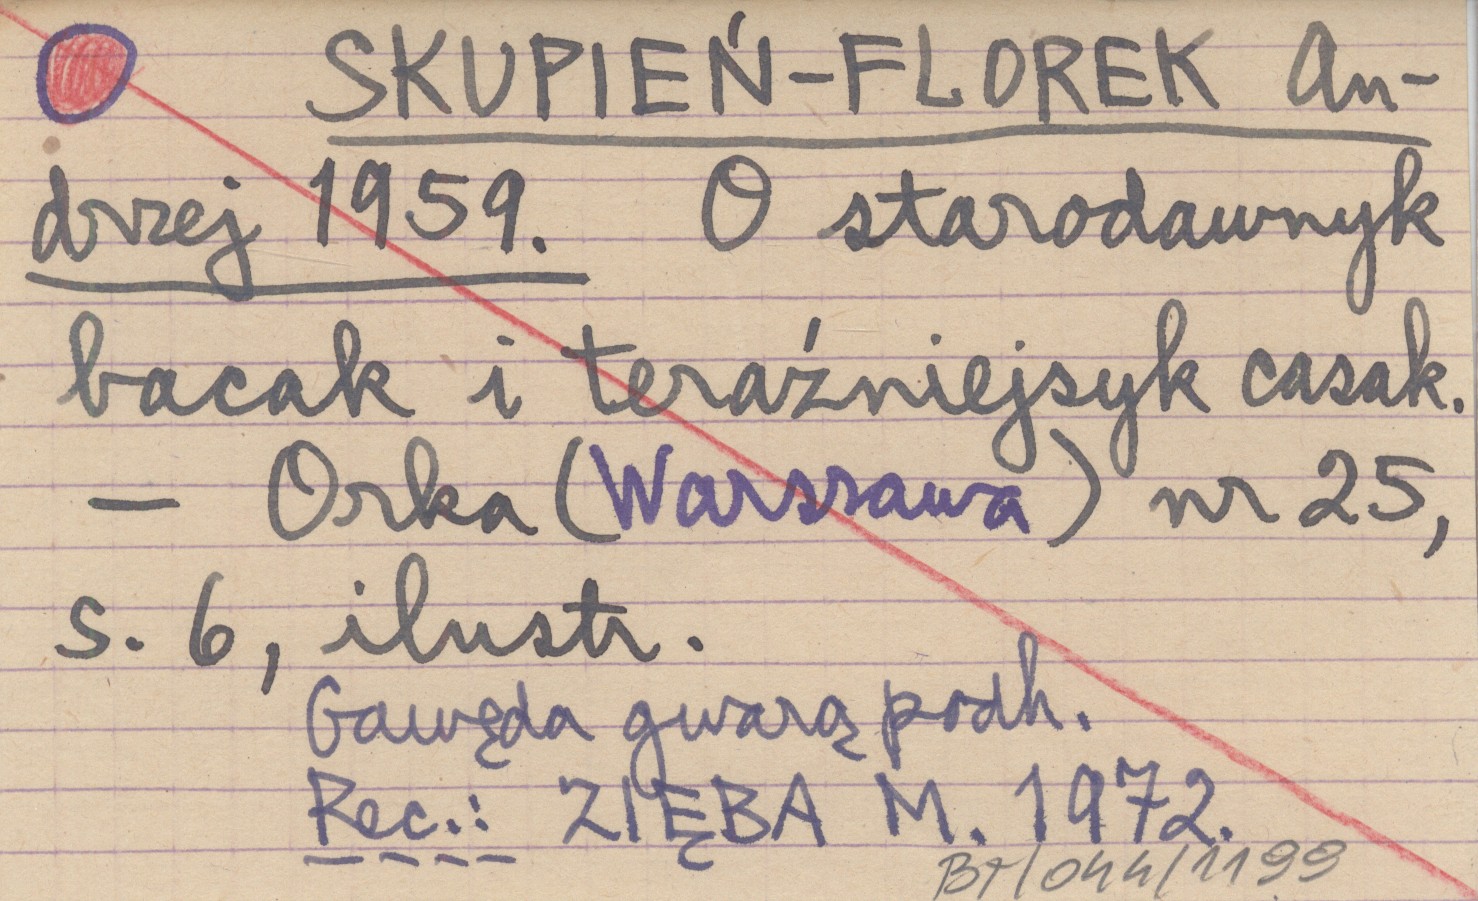 SKUPIEŃ-FLOREK An-
drzej 1959. O starodawnyk
bacak i teraźniejsyk casak.
— Orka (Warszawa) nr 25,
s. 6, ilustr.
Gawęda gwarą podh.
Rec.: ZIĘBA M. 1972.
BT/044/1199